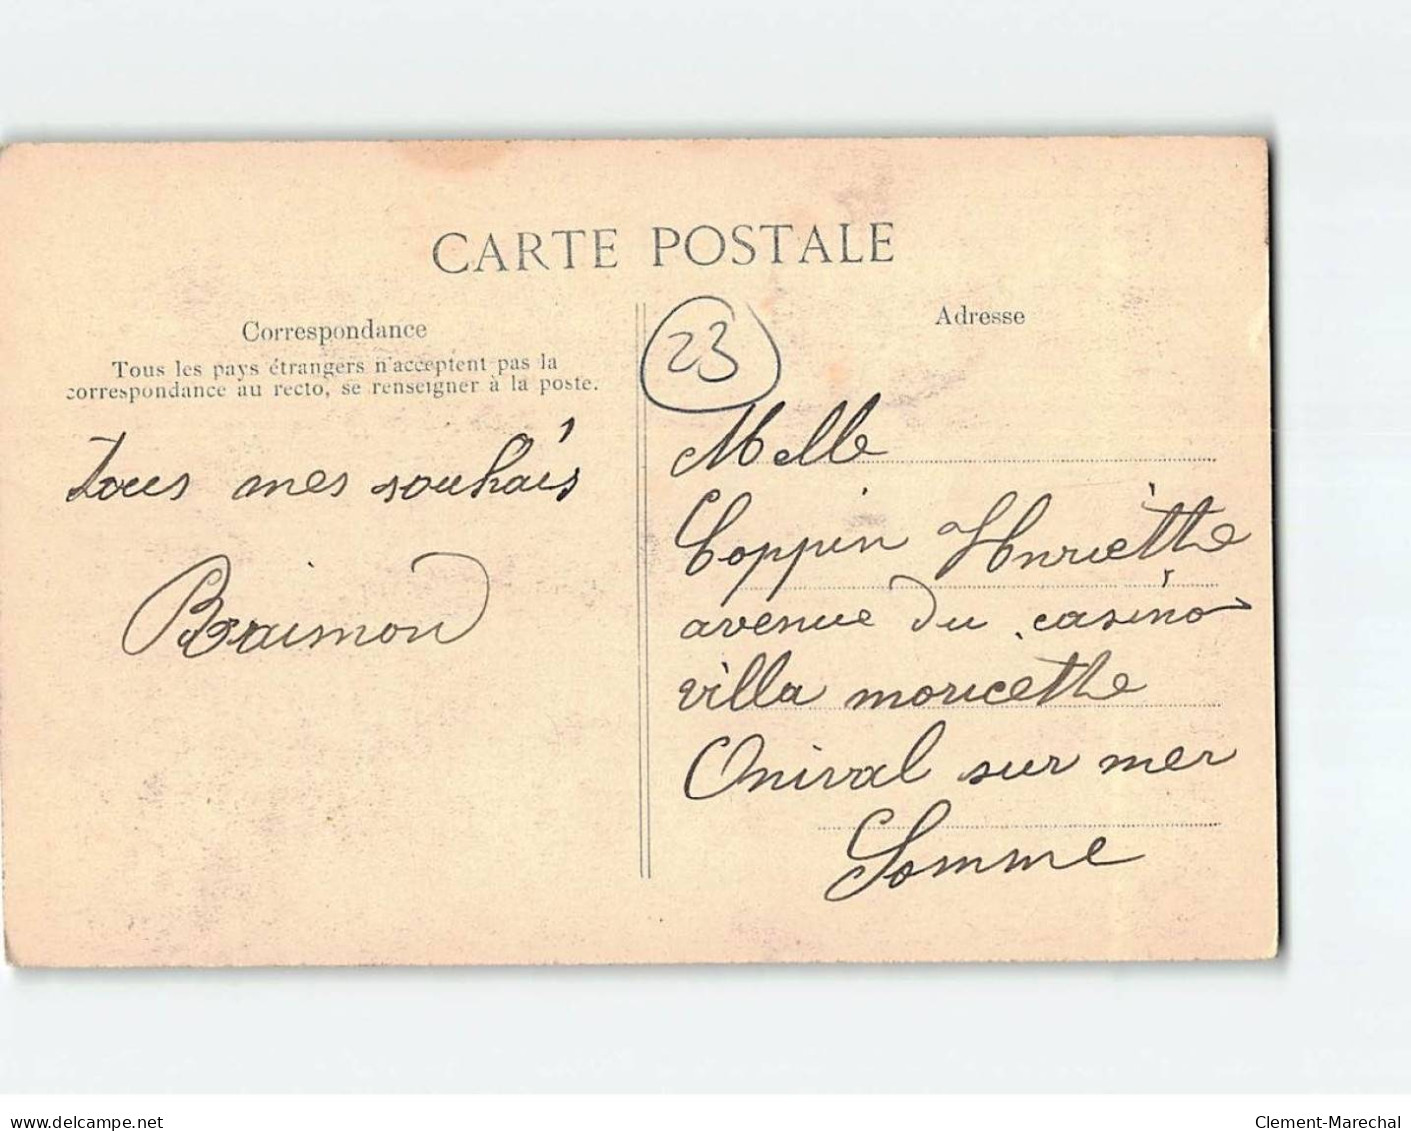 CARTE POSTALE
Correspondance
Tous les pays étrangers n'acceptent pas la
correspondance au recto, se renseigner à la poste.
tous mes souhais
Braimon
23
Adresse
Melle
Coppin Henriette
avenue du casino
villa moricette
Onival sur mer
Somme
delcampe.net
Clement-Marechal